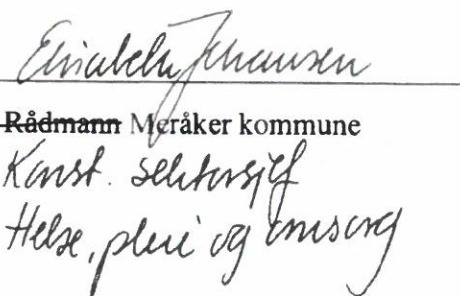 Elisabeth Johansen
Rådmann Meråker kommune
Konst. sektorsjef
Helse, pleie og omsorg